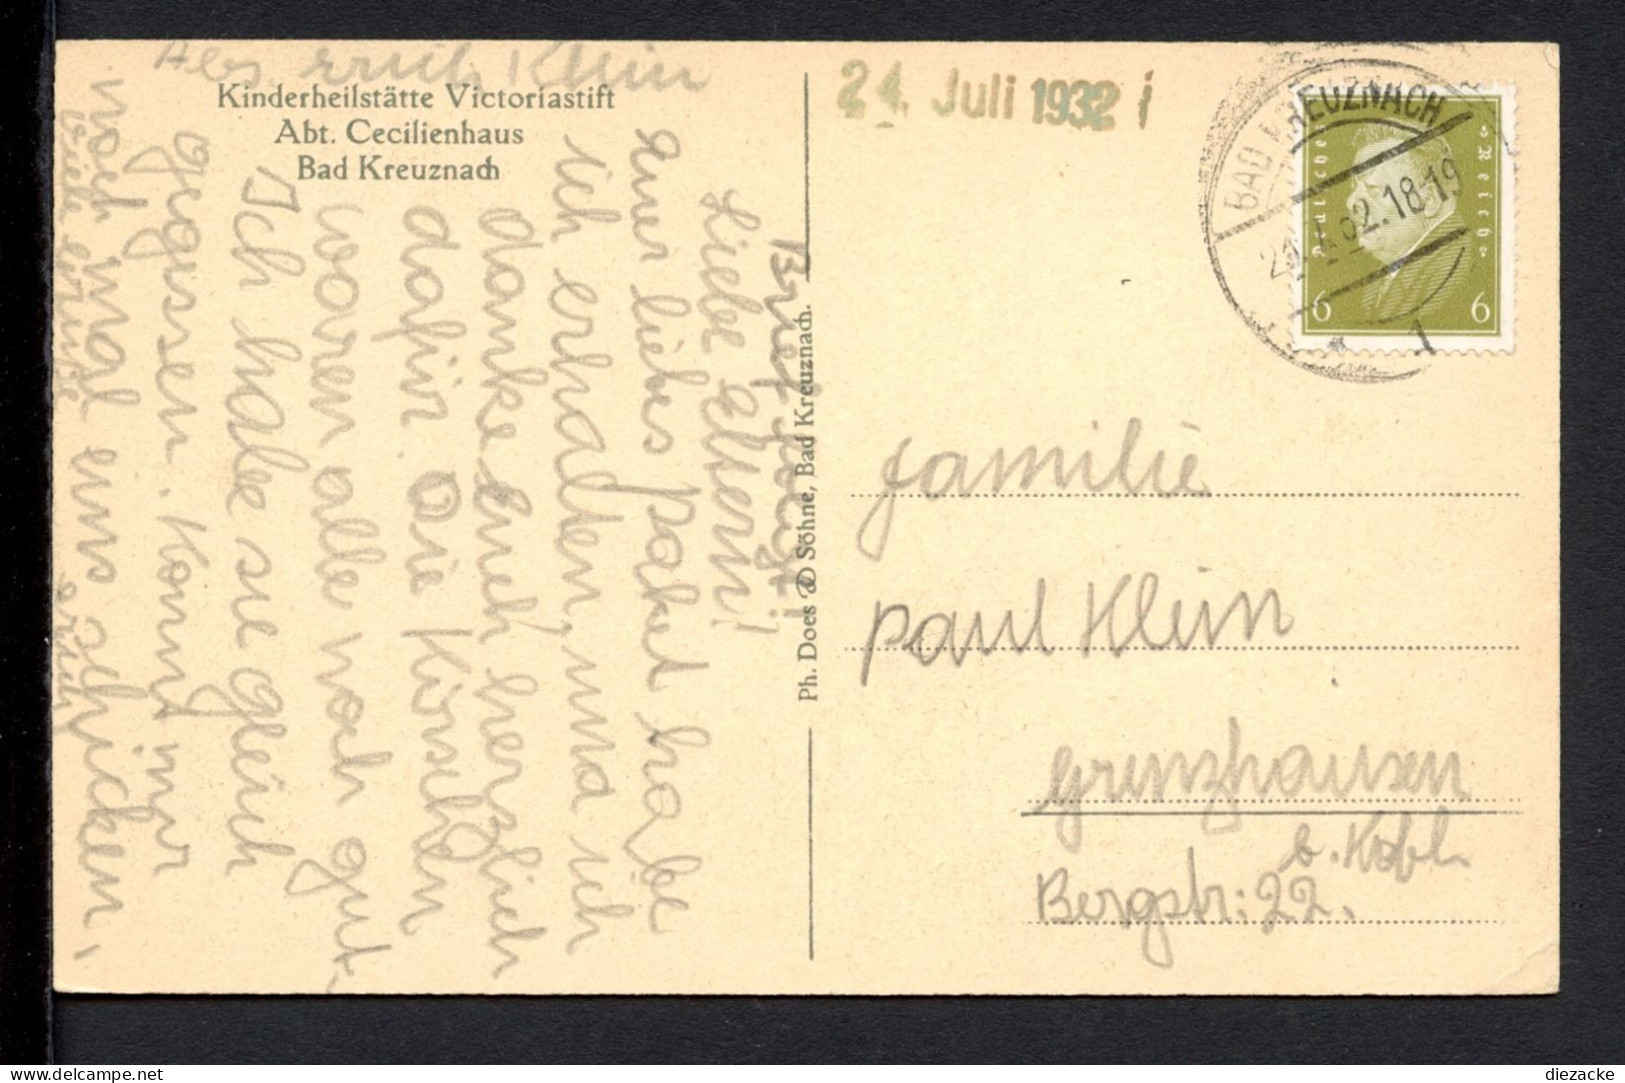 Abs. Erich Klein
Kinderheilstätte Victoriastift
Abt. Cecilienhaus
Bad Kreuznach
Liebe Eltern!
Euer liebes Paket habe
ich erhalten, und ich
danke Euch herzlich
dafür. Die Kirschen
waren alle noch gut.
Ich habe sie gleich
gegessen. Könnt ihr
noch mal uns schicken,
viele Grüße
Erich
Ph. Does & Söhne, Bad Kreuznach.
24. Juli 1932
BAD KREUZNACH
32.18-19
1
Deutsches Reich
6 6
Familie
Paul Klein
Grenzhausen
b. Kobl.
Bergstr: 22.
diezacke
delcampe.net